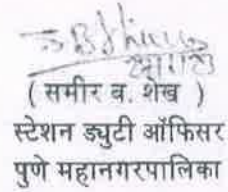 ( समीर ब. शेख )
स्टेशन ड्युटी ऑफिसर
पुणे महानगरपालिका